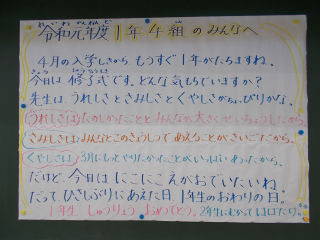 令和元年度 1年4組のみんなへ
4月の入学しきから もうすぐ1年がたちますね。
今日は修了式です。どんな気もちでいますか?
先生は、うれしさとさみしさとくやしさがちょぴりかな。
うれしさは たのしかったことと みんなが 大きくせいちょうしたから。
さみしさは みんなとこのきょうしつで あえることがさいごだから。
くやしさは 3月にもっとやりたかったことが いっぱいあったから。
だけど、今日は にこにこえがおでいたいね
だって、ひさしぶりにあえた日 1年生のおわりの日。
1年生 しゅうりょう おめでとう。2年生にむかってはばたけ。